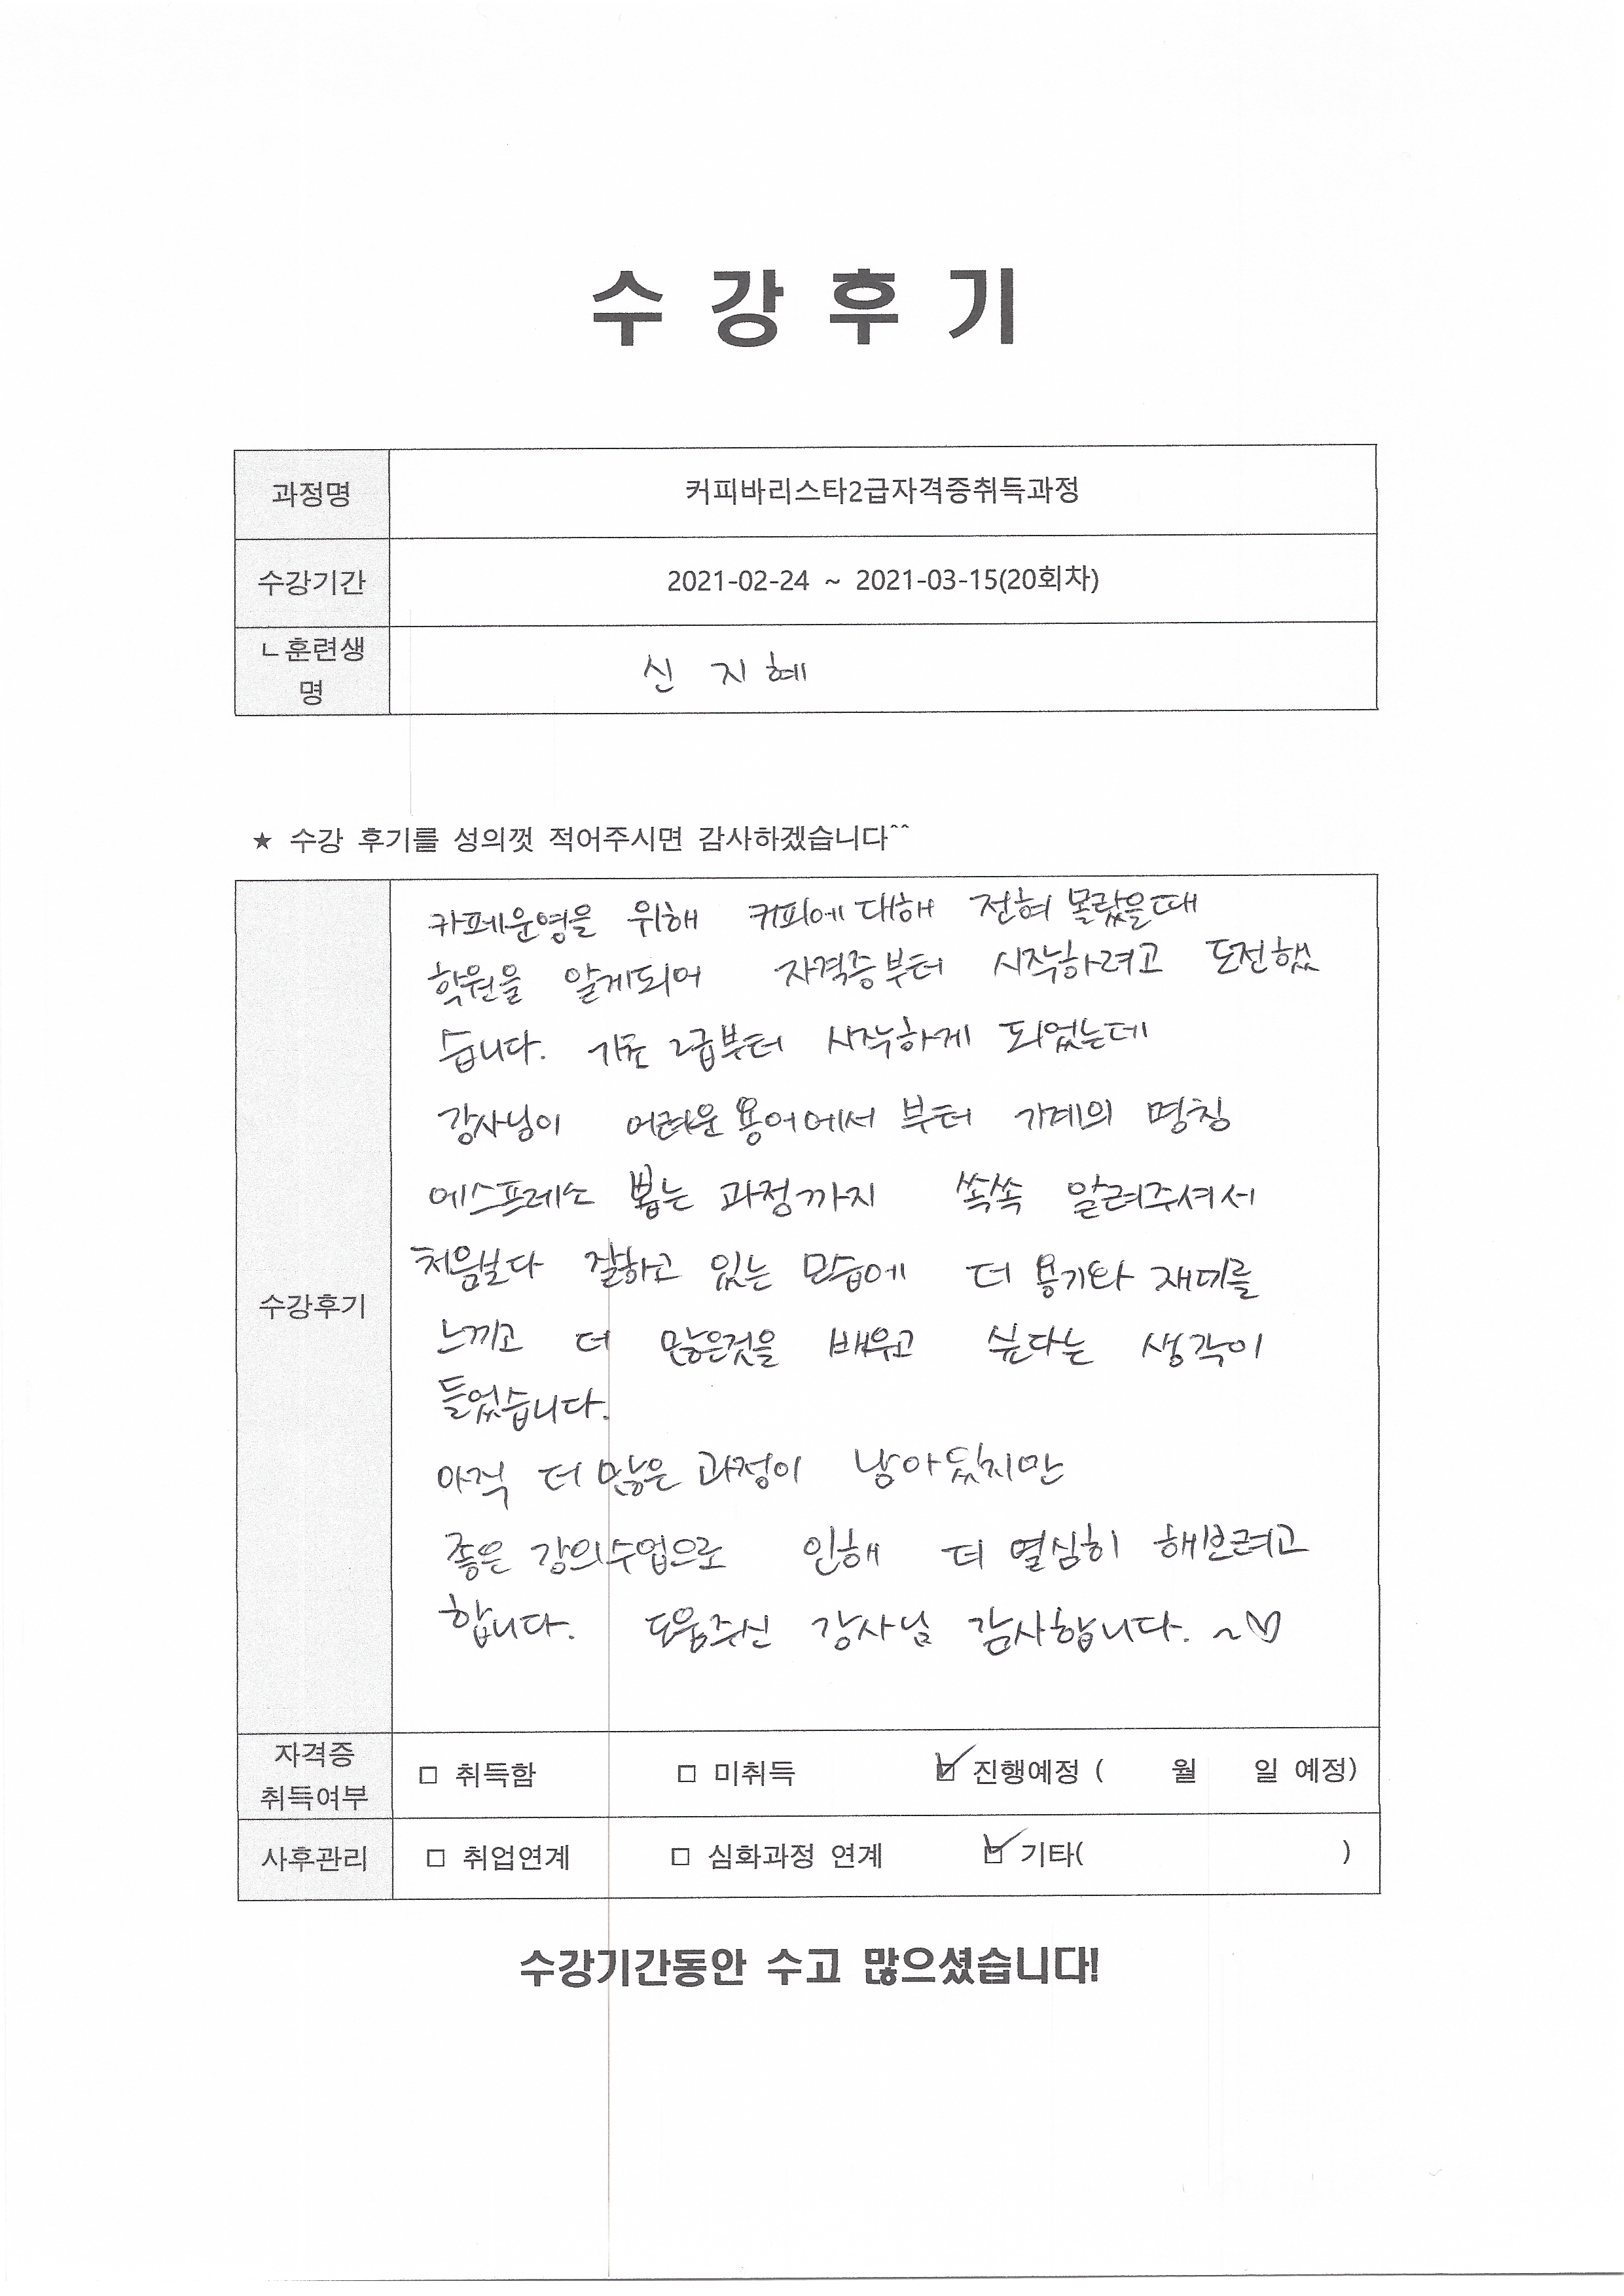 수 강 후 기
과정명 커피바리스타2급자격증취득과정
수강기간 2021-02-24 ~ 2021-03-15(20회차)
ㄴ훈련생
명
신 지 혜
★ 수강 후기를 성의껏 적어주시면 감사하겠습니다^^
수강후기
카페운영을 위해 커피에 대해 전혀 몰랐을때
학원을 알게되어 자격증부터 시작하려고 도전했
습니다. 기초 2급부터 시작하게 되었는데
강사님이 어려운 용어에서 부터 기계의 명칭
에스프레소 뽑는 과정까지 쏙쏙 알려주셔서
처음보다 잘하고 있는 모습에 더 용기와 재미를
느끼고 더 많은것을 배우고 싶다는 생각이
들었습니다.
아직 더 많은 과정이 남아 있지만
좋은 강의수업으로 인해 더 열심히 해보려고
합니다. 도움주신 강사님 감사합니다. ~♡
자격증
취득여부
□ 취득함 □ 미취득 ☑ 진행예정 ( 월 일 예정)
사후관리 □ 취업연계 □ 심화과정 연계 ☑ 기타( )
수강기간동안 수고 많으셨습니다!